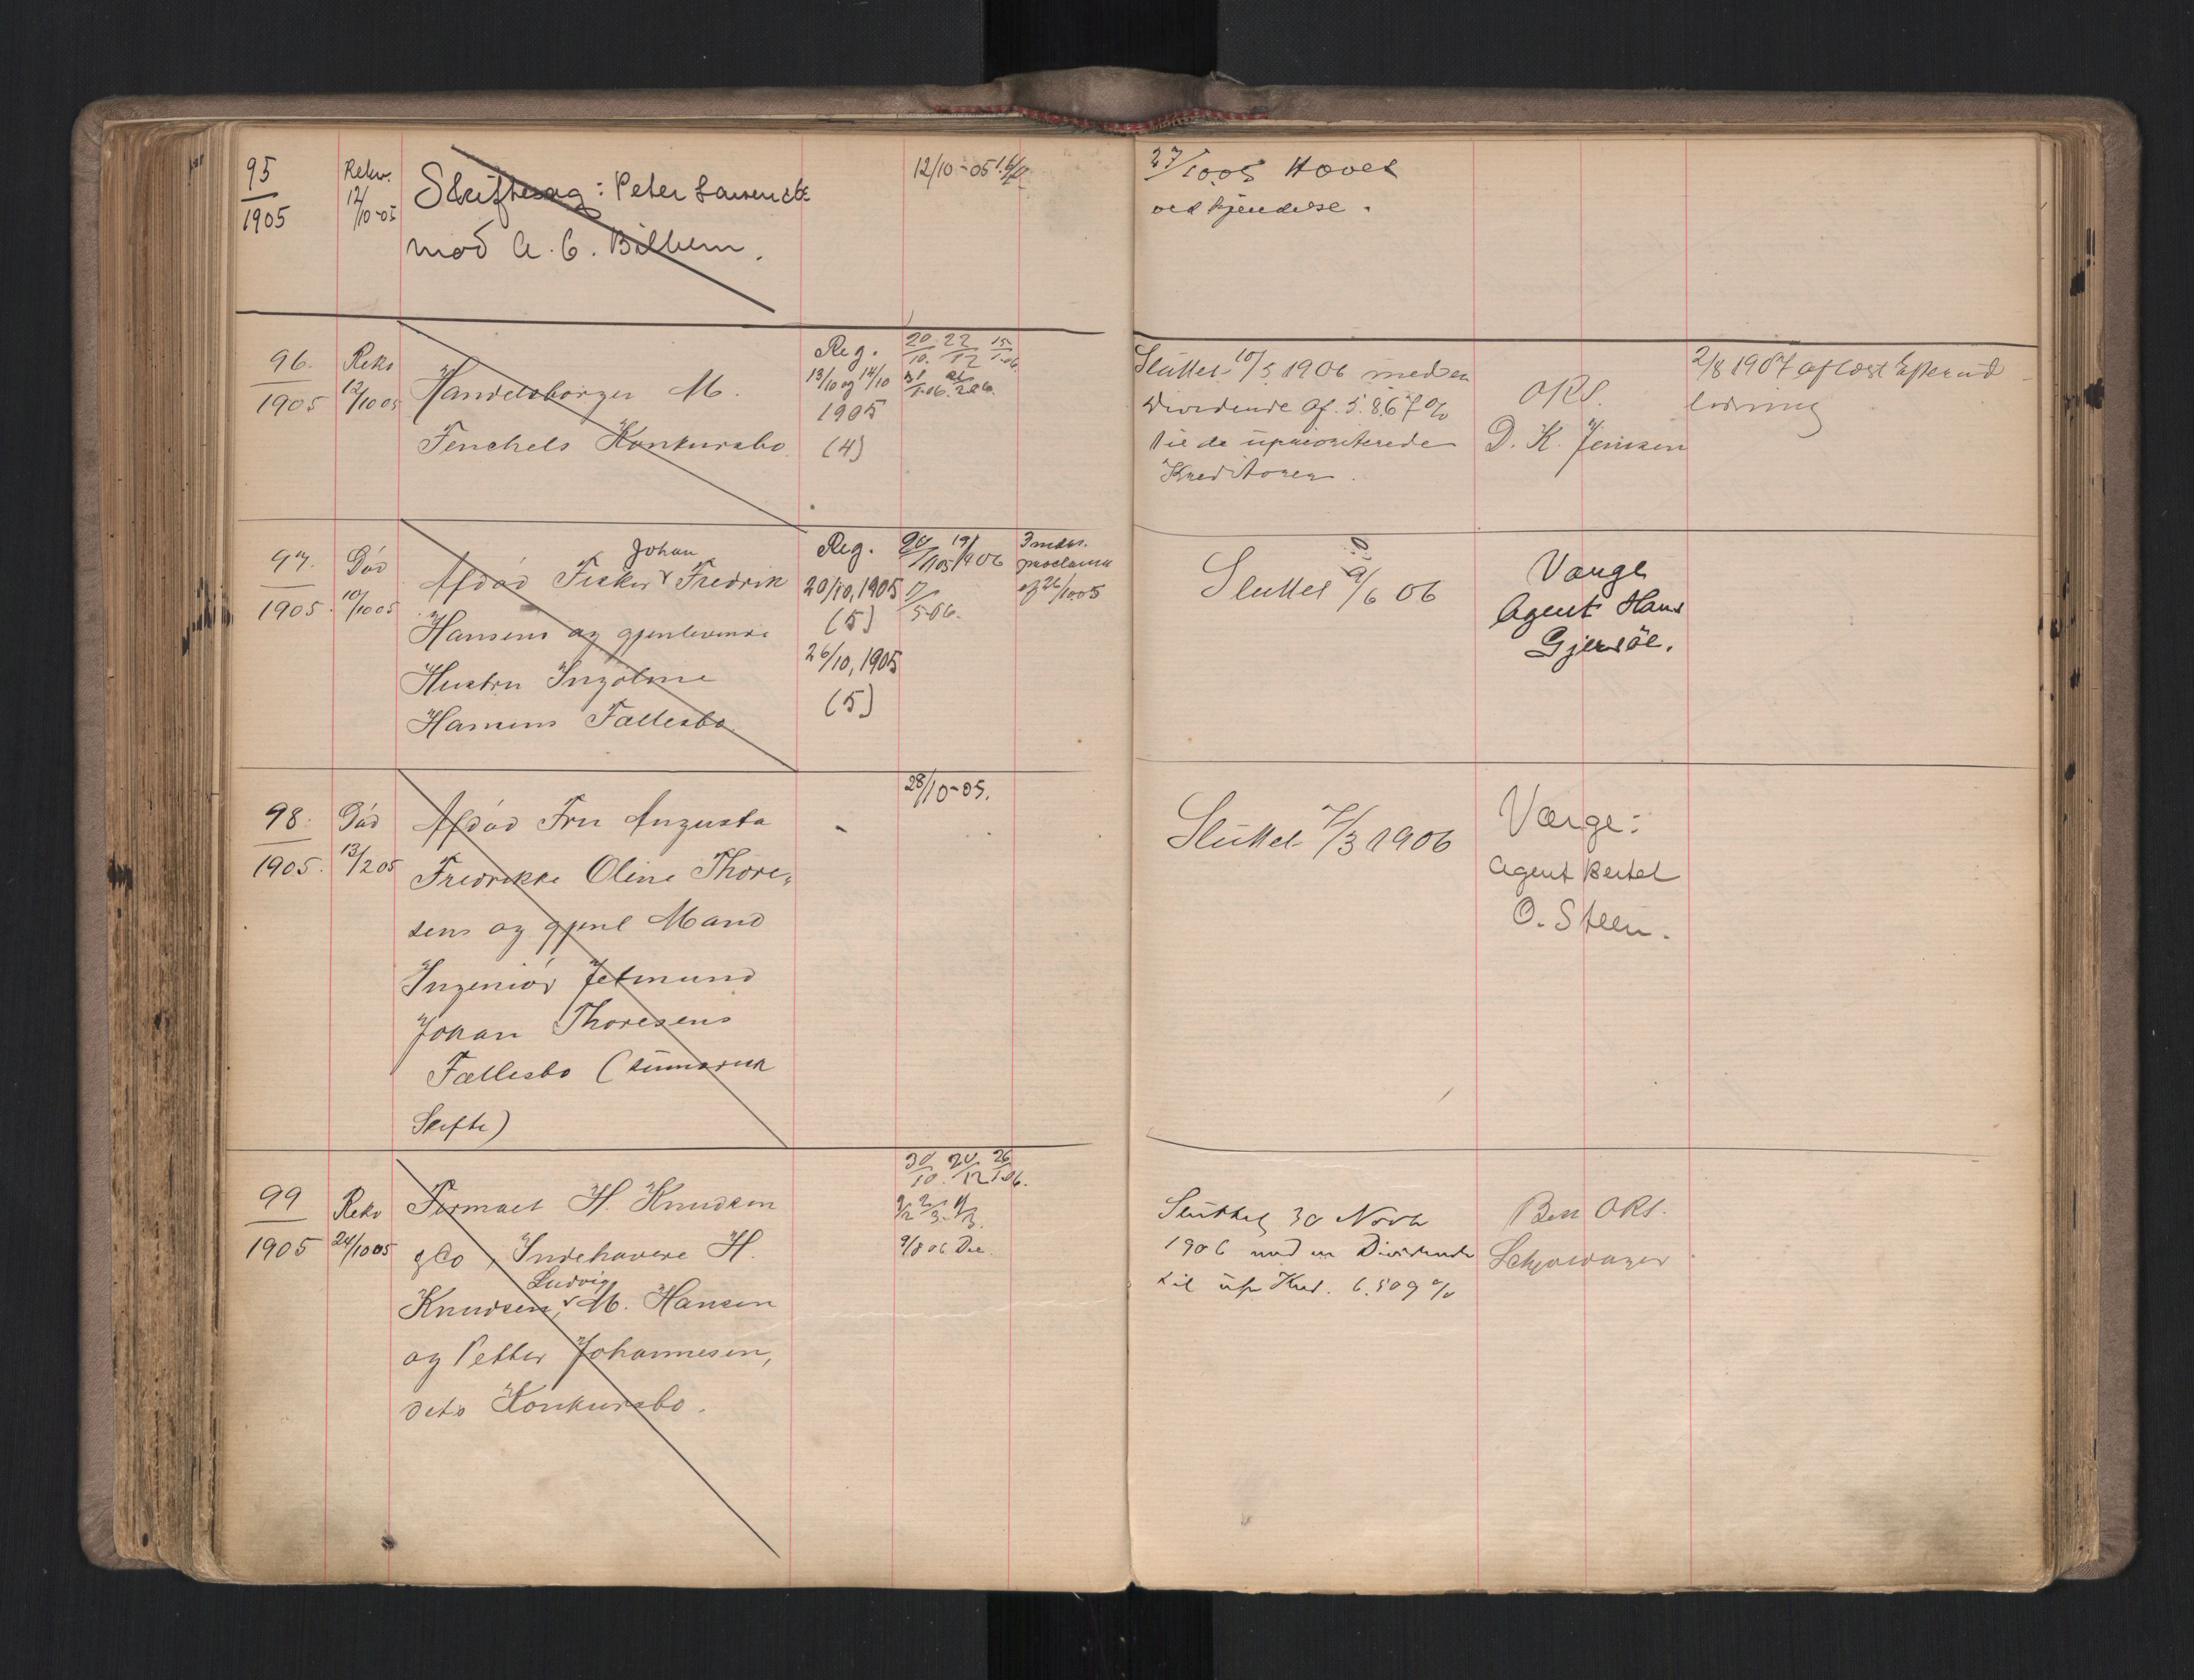 95
1905
Rekv.
12/10-05
Skiftesag: Peter
mod A. C.
12/10-05
27/10 05 Hævet
ved kjendelse.
96.
1905
Reko
12/10 05
Handelsborger M.
Fenchels Konkursbo.
Reg.
13/10 og 14/10
1905
(4)
20/10. 22/12 15/1.06
Sluttet 10/5 1906 med en
Dividende af 5.867 %
til de uprioriterede
Kreditorer.
ORS.
D. K. Jensen
2/8 1907 aflæst Efterud-
lodning
97.
1905.
Død
10/10 05
Johan
Afdød Fisker Fredrik
Hansens og gjenlevende
Hustru
Hansens Fællesbo.
Reg.
20/10, 1905
(5)
26/10, 1905
(5)
3 mdrs.
proclama
af 26/10 05
Sluttet 9/6 06
Værge
Agent Hans
Gjersöe.
98.
1905.
Død
13/2 05
Afdød Fru Augusta
Fredrikke Oline Thore-
sens og gjenl Mand
Ingeniør Jetmund
Johan Thoresens
Fællesbo (summarisk
Skifte)
28/10-05.
Sluttet 7/3 1906
Værge:
Agent Bertel
O. Steen.
99
1905
Reko
24/10 05
Firmaet H. Knudsen
& Co, Indehavere H.
Ludvig
Knudsen, M. Hansen
og Petter Johannesen,
dets Konkursbo.
30/10. 20/12 26/1.06.
Sluttet 30 Novbr
1906 med en Dividende
til upr Kred. 6.509 %
Best ORS.